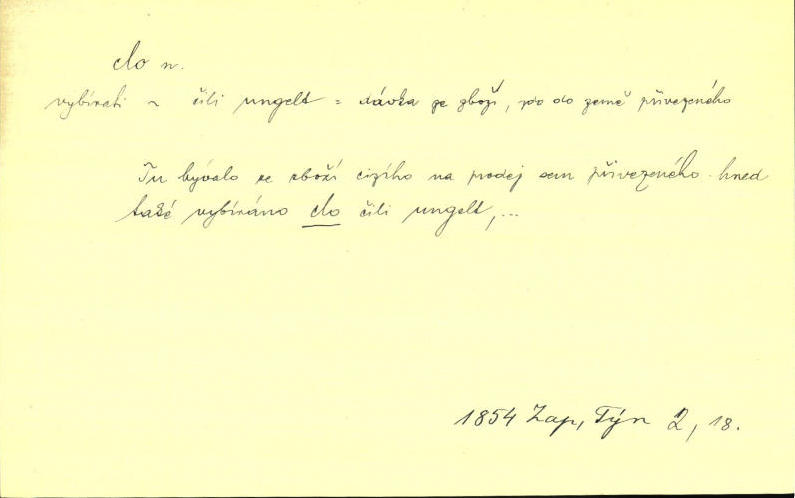 clo n.
vybírati ~ čili ungelt = dávka ze zboží, do země přivezeného
Tu bývalo ze zboží cizího na prodej sem přivezeného hned
také vybíráno clo čili ungelt,...
1854 Zap, Týn 2, 18.